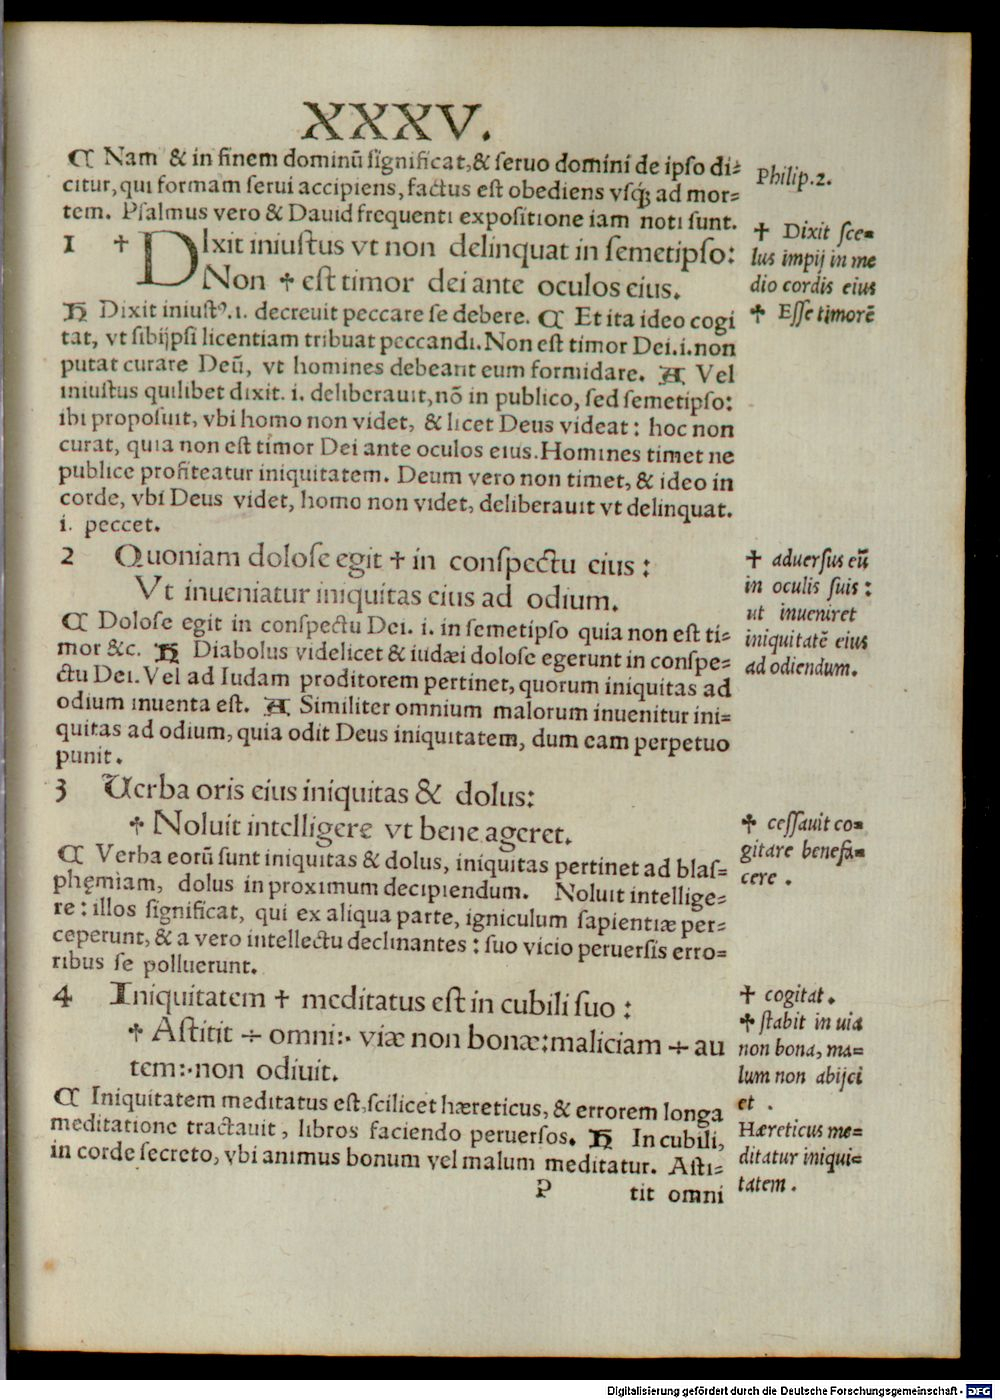 XXXV.
₵ Nam & in finem dominū significat, & seruo domini de ipso di=
citur, qui formam serui accipiens, factus est obediens vsq; ad mor=
tem. Psalmus vero & Dauid frequenti expositione iam noti sunt.
Philip.2.
1 † DIxit iniustus vt non delinquat in semetipso:
Non † est timor dei ante oculos eius.
† Dixit sce=
lus impij in me
dio cordis eius
† Esse timorē
H Dixit iniustꝰ .i. decreuit peccare se debere. ₵ Et ita ideo cogi
tat, vt sibijpsi licentiam tribuat peccandi. Non est timor Dei .i. non
putat curare Deū, vt homines debeant eum formidare. A Vel
iniustus quilibet dixit. i. deliberauit, nō in publico, sed semetipso:
ibi proposuit, vbi homo non videt, & licet Deus videat: hoc non
curat, quia non est timor Dei ante oculos eius. Homines timet ne
publice profiteatur iniquitatem. Deum vero non timet, & ideo in
corde, vbi Deus videt, homo non videt, deliberauit vt delinquat.
i. peccet.
2 Quoniam dolose egit † in conspectu eius:
Vt inueniatur iniquitas eius ad odium.
† aduersus eū
in oculis suis:
ut inueniret
iniquitatē eius
ad odiendum.
₵ Dolose egit in conspectu Dei. i. in semetipso quia non est ti=
mor &c. H Diabolus videlicet & iudæi dolose egerunt in conspe=
ctu Dei. Vel ad Iudam proditorem pertinet, quorum iniquitas ad
odium inuenta est. A Similiter omnium malorum inuenitur ini=
quitas ad odium, quia odit Deus iniquitatem, dum eam perpetuo
punit.
3 Uerba oris eius iniquitas & dolus:
† Noluit intelligere vt bene ageret.
† cessauit co=
gitare benefa=
cere.
₵ Verba eorū sunt iniquitas & dolus, iniquitas pertinet ad blas=
phęmiam, dolus in proximum decipiendum. Noluit intellige=
re: illos significat, qui ex aliqua parte, igniculum sapientiæ per=
ceperunt, & a vero intellectu declinantes: suo vicio peruersis erro=
ribus se polluerunt.
4 Iniquitatem † meditatus est in cubili suo:
† Astitit ÷ omni:· viæ non bonæ: maliciam ÷ au
tem:· non odiuit.
† cogitat.
† stabit in uia
non bona, ma=
lum non abijci
et.
Hæreticus me=
ditatur iniqui=
tatem.
₵ Iniquitatem meditatus est, scilicet hæreticus, & errorem longa
meditatione tractauit, libros faciendo peruersos. H In cubili,
in corde secreto, vbi animus bonum vel malum meditatur. Asti=
P tit omni
Digitalisierung gefördert durch die Deutsche Forschungsgemeinschaft - DFG